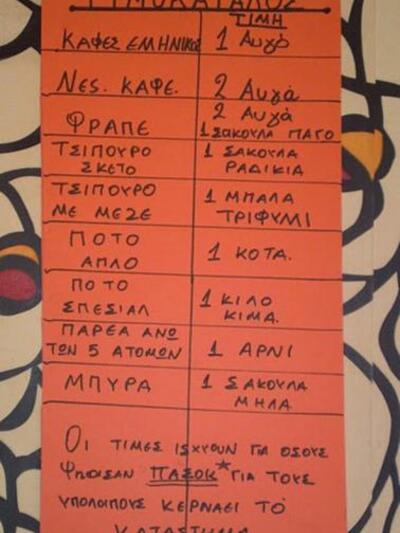 ΤΙΜΟΚΑΤΑΛΟΣ
ΤΙΜΗ
ΚΑΦΕΣ ΕΛΗΝΙΚΟΣ 1 Αυγό
ΝΕS. ΚΑΦΕ. 2 Αυγά
ΦΡΑΠΕ 2 Αυγά
1 ΣΑΚΟΥΛΑ ΠΑΓΟ
ΤΣΙΠΟΥΡΟ ΣΚΕΤΟ 1 ΣΑΚΟΥΛΑ ΡΑΔΙΚΙΑ
ΤΣΙΠΟΥΡΟ ΜΕ ΜΕΖΕ 1 ΜΠΑΛΑ ΤΡΙΦΥΛΛΙ
ΠΟΤΟ ΑΠΛΟ 1 ΚΟΤΑ.
ΠΟΤΟ ΣΠΕΣΙΑΛ 1 ΚΙΛΟ ΚΙΜΑ.
ΠΑΡΕΑ ΑΝΩ ΤΩΝ 5 ΑΤΟΜΩΝ 1 ΑΡΝΙ
ΜΠΥΡΑ 1 ΣΑΚΟΥΛΑ ΜΗΛΑ
Οι ΤΙΜΕΣ ΙΣΧΥΟΥΝ ΓΙΑ ΟΣΟΥΣ
ΨΗΦΙΣΑΝ ΠΑΣΟΚ* ΓΙΑ ΤΟΥΣ
ΥΠΟΛΟΙΠΟΥΣ ΚΕΡΝΑΕΙ ΤΟ
ΚΑΤΑΣΤΗΜΑ